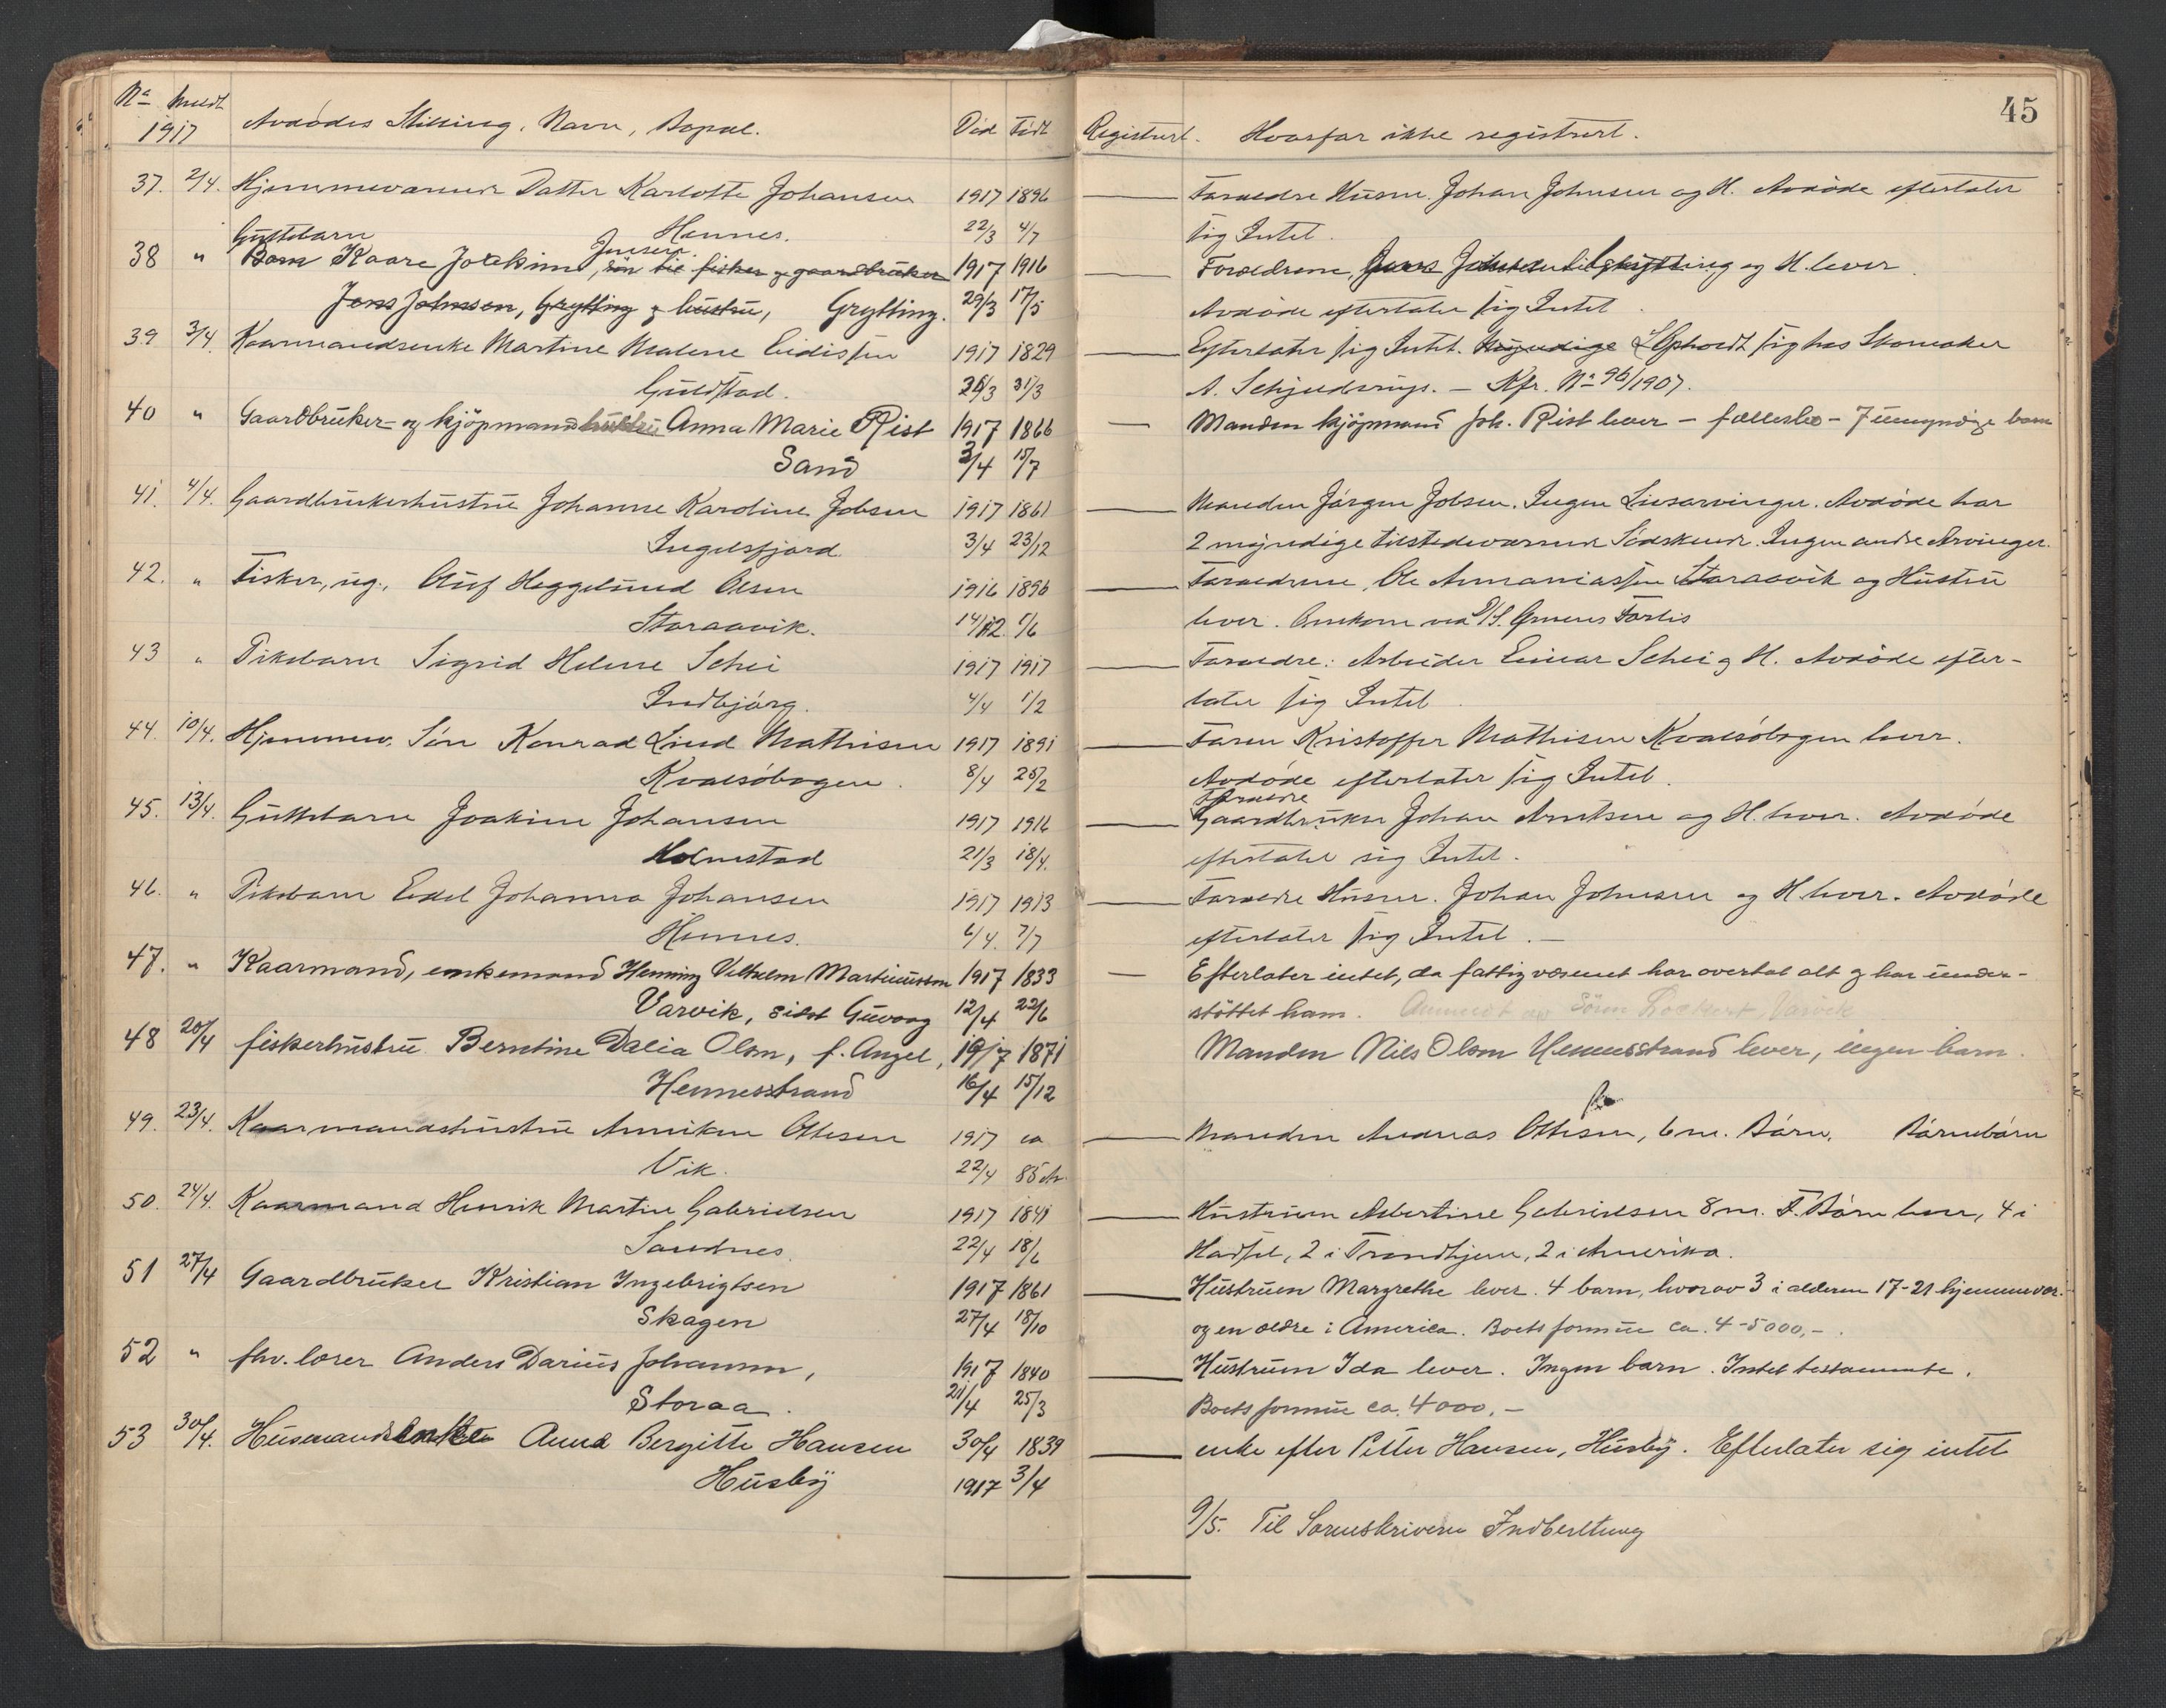 45
No Meldt 1917 Avdødes Stilling, Navn, Bopæl. Død Født Registrert. Hvorfor ikke registrert.
37. 2/4. Hjemmeværende Datter Karlotte Johansen 1917 1896 — Forældre Husm. Johan Johnsen og H. Avdøde efterlater
Hennes. 22/3 4/7 sig Intet.
38 " Guttebarn Barn Kaare Joakim Jensen, søn til fisker og gaardbruker 1917 1916 — Forældrene Jens Johnsen Grytting og H. lever.
Jens Johnsen, Grytting og hustru, Grytting. 29/3 17/5 Avdøde efterlater sig Intet.
39 3/4. Kaarmandsenke Martine Malene Eidissen 1917 1829 — Efterlater sig Intet. Myndige Opholdt sig hos Skomaker
Guldstad. 31/3 A. Schjelderups. — Kfr. No 96/1907.
40 " Gaardbruker- og kjøpmandshustru Anna Marie Rist 1917 1866 — Manden kjøpmand Joh. Rist lever - fællesbo - 7 umyndige barn
Sand 3/4 15/7
41. 4/4. Gaardbrukerhustru Johanne Karoline Jobsen 1917 1861 — Manden Jørgen Jobsen. Ingen Livsarvinger. Avdøde har
Ingelsfjord. 3/4 23/12 2 myndige tilstedeværende Sødskende. Ingen andre Arvinger.
42. " Fisker, ug., Oluf Heggelund Olsen 1916 1896 — Forældrene Ole Annaniassen Staraavik og Hustru
Staraavik. 14/12. /6 lever. Omkom ved D/S. Forlis
43 " Pikebarn Sigrid Helene Schei 1917 1917 — Forældre: Arbeider Einar Schei og H. Avdøde efter-
Indbjørg. 4/4 1/2 later sig Intet.
44. 10/4. Hjemmev. Søn Konrad Lind Mathisen 1917 1891 — Faren Kristoffer Mathisen Kvalsøbogen lever.
Kvalsøbogen. 8/4 25/2 Avdøde efterlater sig Intet.
45. 13/4. Guttebarn Joakim Johansen 1917 1916 — Forældre Gaardbruker Johan Arntsen og H. lever. Avdøde
Holmstad 21/3 18/4. efterlater sig Intet.
46. " Pikebarn Edel Johanna Johansen 1917 1913 — Forældre Husm. Johan Johnsen og H. lever. Avdøde
Hennes. 6/4. 7/7 efterlater sig Intet. —
47. " Kaarmand, enkemand Henning Vilhelm Martinussen 1917 1833 — Efterlater intet, da fattigvæsenet har overtat alt og har under-
Varvik, sidst Guvaag 12/4 22/6 støttet ham. Anmeldt av Sören Lockert, Varvik
48 20/4 fiskerhustru Berntine Dalia Olsen, f. Angel, 1917 1871 Manden Nils Olsen Hennesstrand lever, ingen barn.
Hennesstrand 16/4 15/12
49. 23/4. Kaarmandshustru Anniken Ottesen 1917 ca — Manden Andreas Ottesen, 6 m. Børn, Børnebørn
Vik. 22/4 85 Aar
50. 24/4. Kaarmand Henrik Martin Gabrielsen 1917 1841 — Hustruen Albertine Gabrielsen 8 m. F. Børn lever, 4 i
Sandnes. 22/4 18/6 Hadsel, 2 i Trondhjem, 2 i Amerika.
51 27/4 Gaardbruker Kristian Ingebrigtsen 1917 1861 — Hustruen Margrethe lever. 4 barn, hvorav 3 i alderen 17-21 hjemmevær.
Skagen 27/4 18/10 og en ældre i America. Boets formue ca. 4-5000,-.
52 " fhv. lærer Anders Darius Johansen, 1917 1840 — Hustruen Ida lever. Ingen barn. Intet testamente.
Storaa. 21/4 25/3 Boets formue ca. 4000,-
53 30/4. Husmandsenke Anna Bergitte Hansen 30/4 1839 — enke efter Petter Hansen, Husby. Efterlater sig intet
Husby 1917 3/4
9/5. Til Sorenskriveren Indberetning